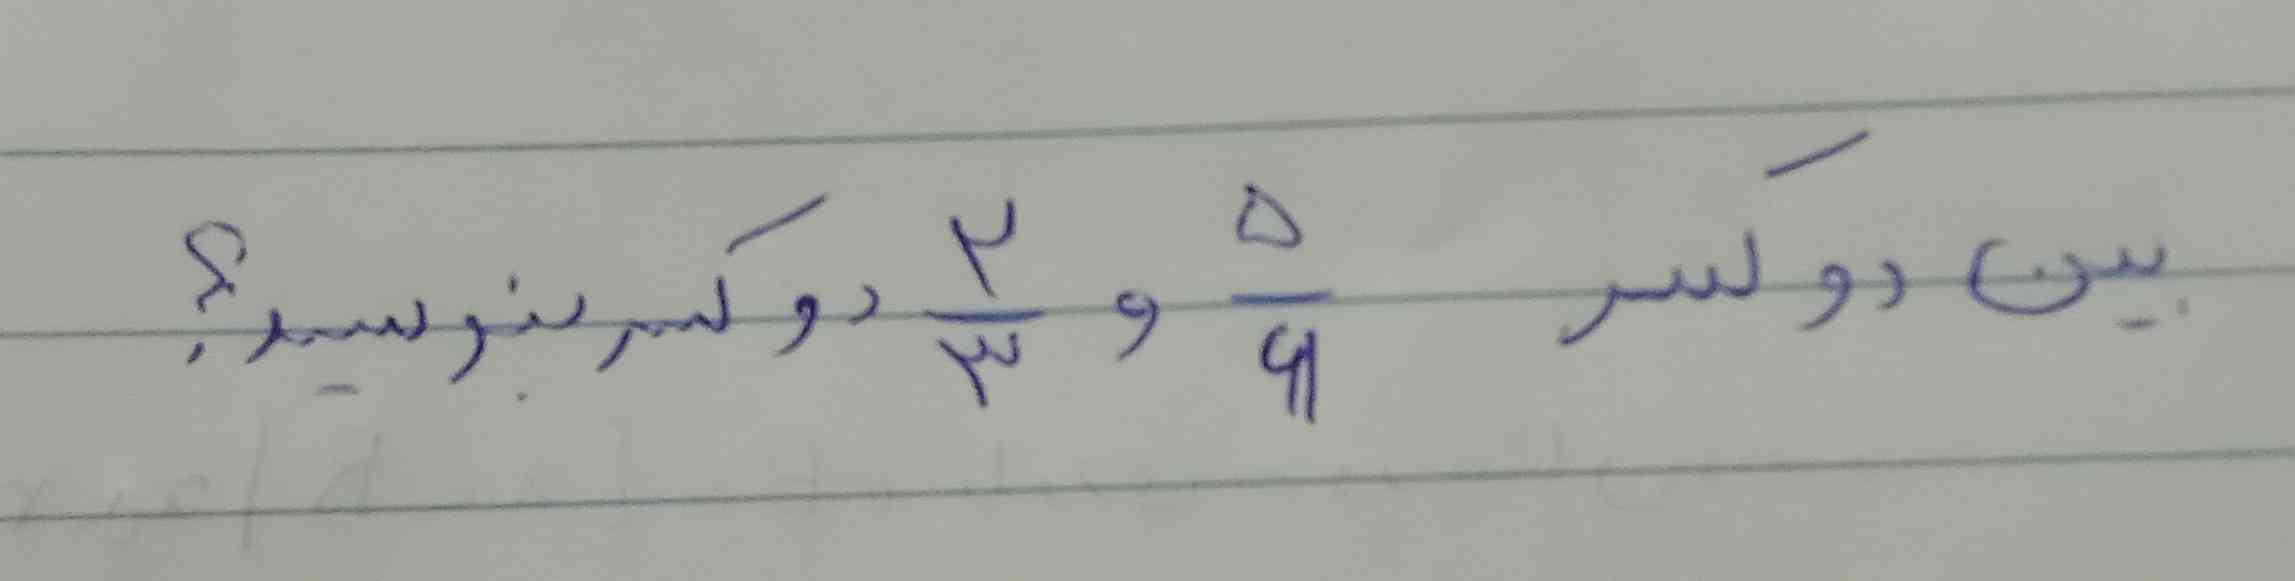 بین دو کسر ۵/۶ و ۲/۳ دو کسر بنویسید؟